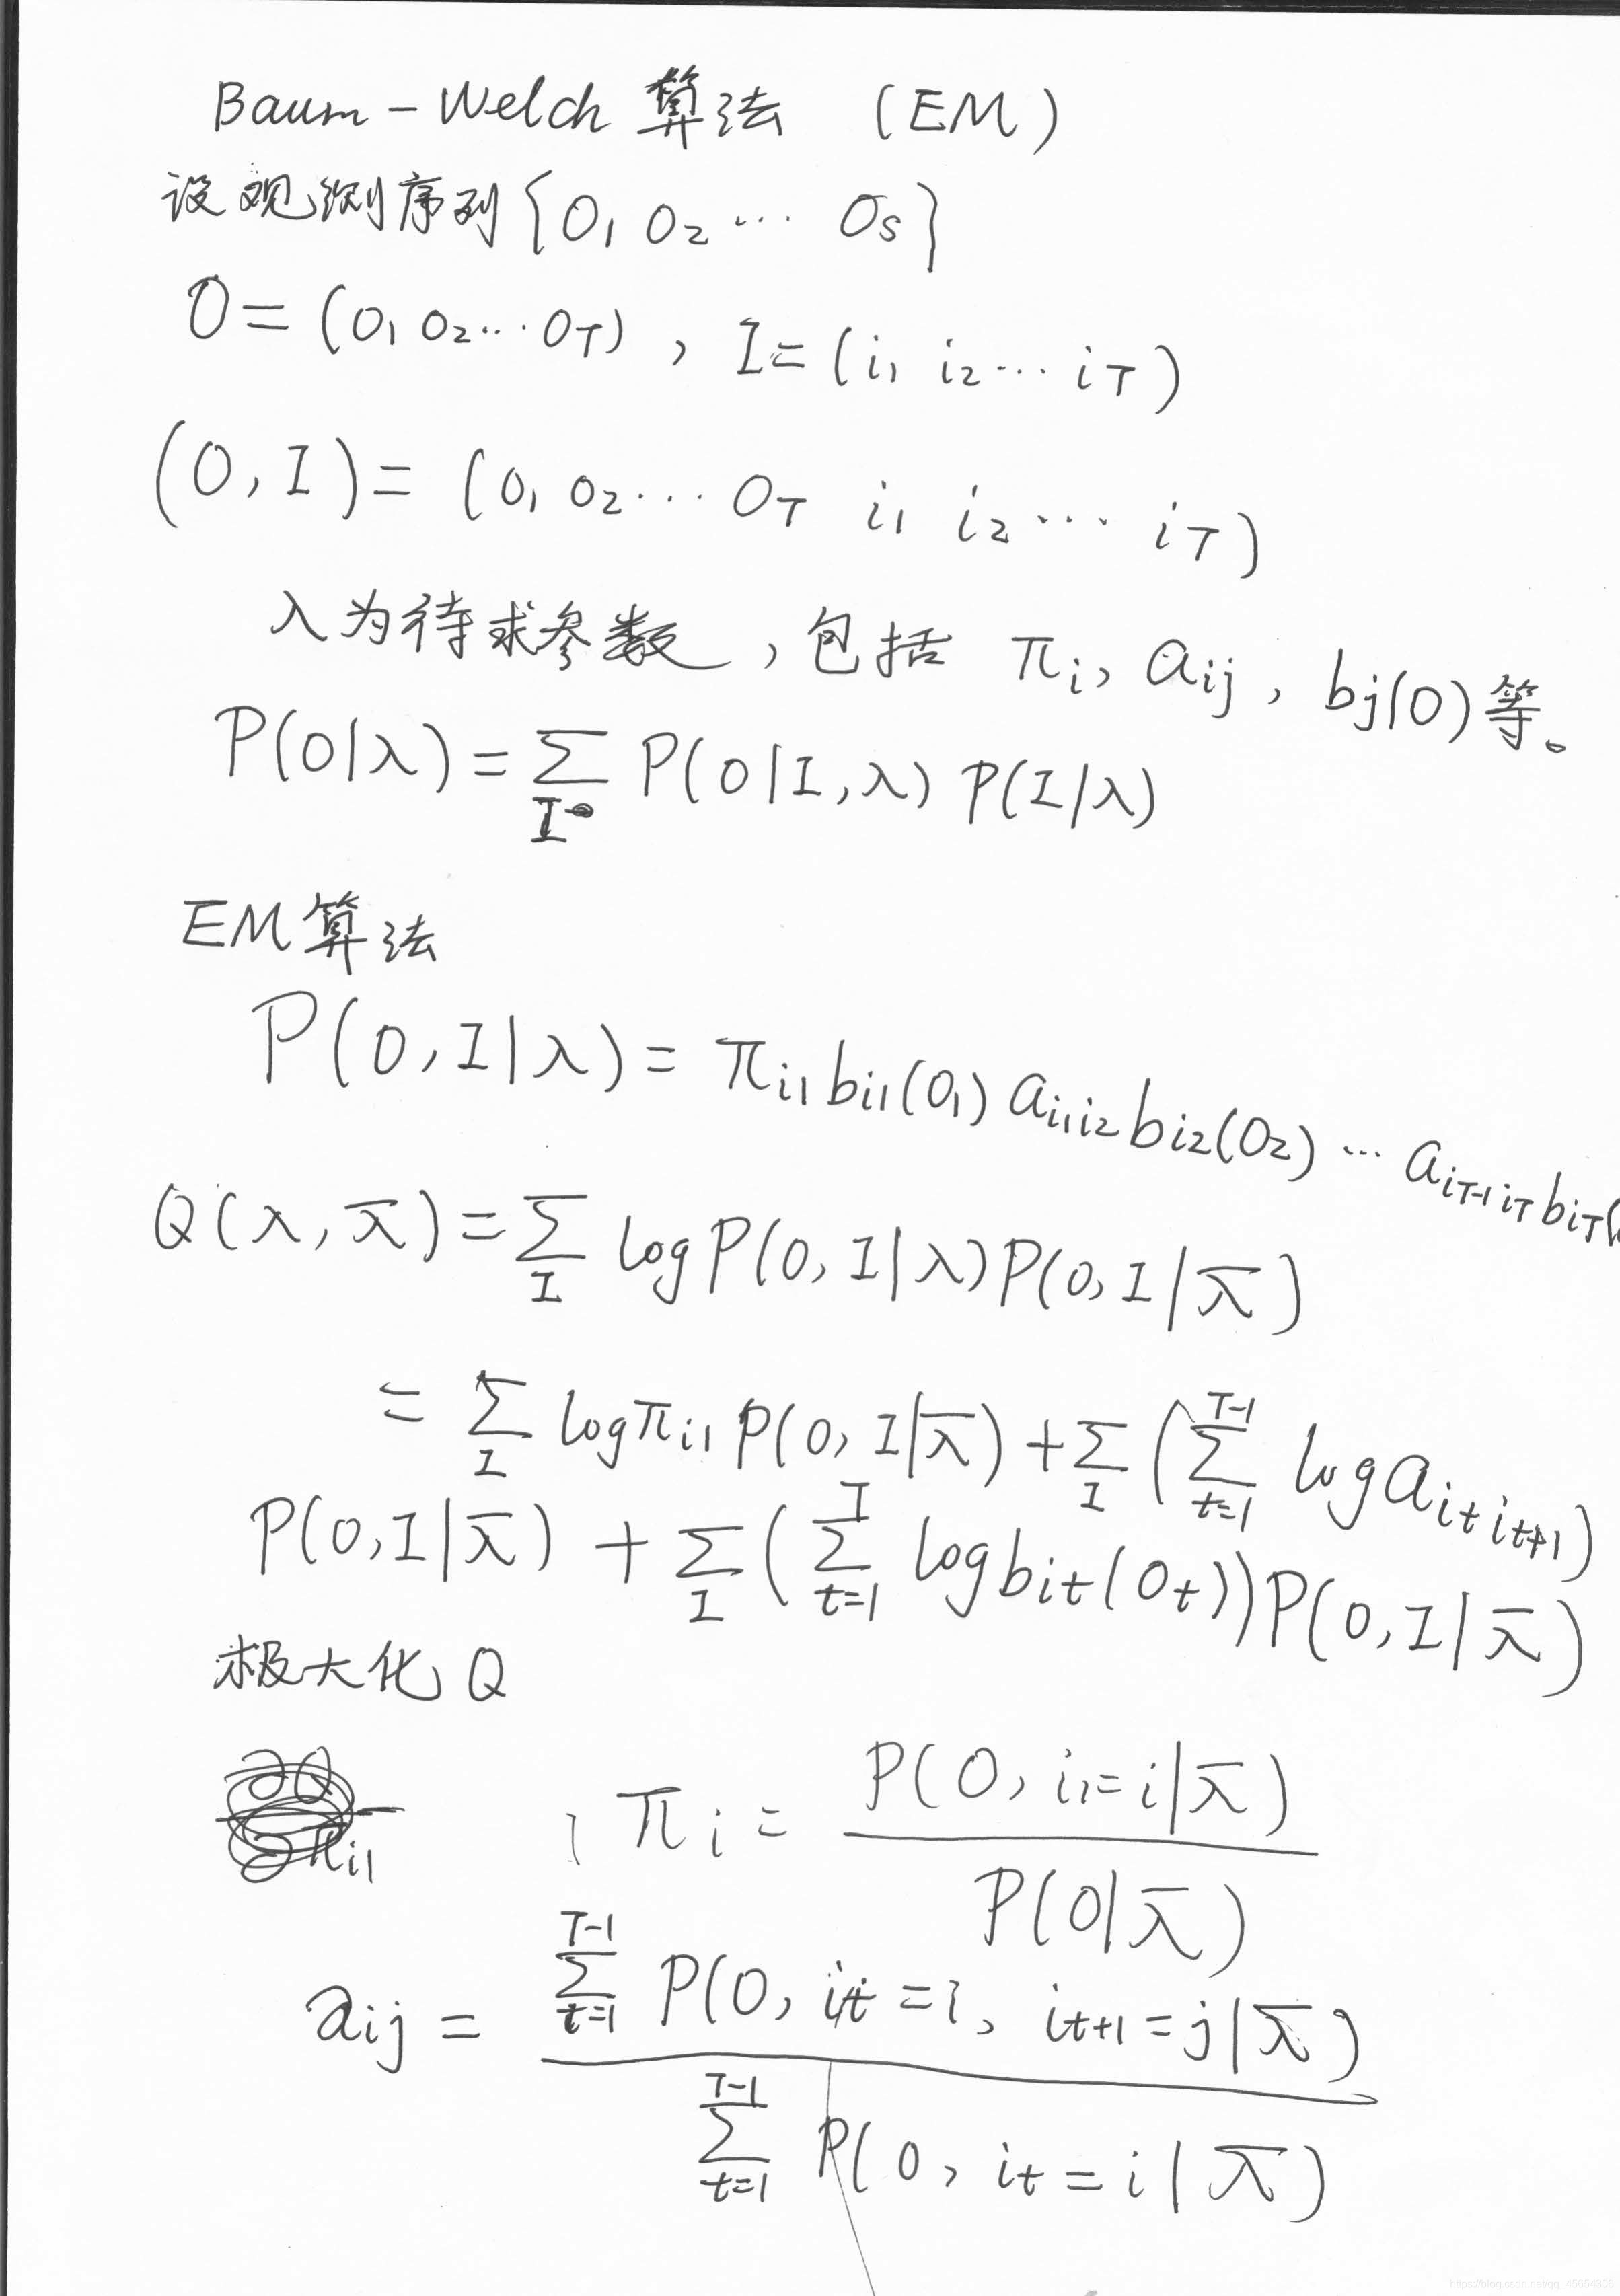 Baum-Welch 算法 (EM)
设观测序列{O₁ O₂ ⋯ Oₛ}
O = (o₁ o₂ ⋯ o_T) , I = (i₁ i₂ ⋯ i_T)
(O, I) = (o₁ o₂ ⋯ o_T i₁ i₂ ⋯ i_T)
λ为待求参数, 包括 π_i, a_ij, b_j(o)等。
P(O|λ) = ∑_I P(O|I,λ) P(I|λ)
EM算法
P(O, I|λ) = π_i₁ b_i₁(o₁) a_i₁i₂ b_i₂(o₂) ⋯ a_i_{T-1}i_T b_i_T(
Q(λ, λ̄) = ∑_I log P(O, I|λ) P(O, I|λ̄)
= ∑_I log π_i₁ P(O, I|λ̄) + ∑_I (∑_{t=1}^{T-1} log a_i_t i_{t+1})
P(O, I|λ̄) + ∑_I (∑_{t=1}^{T} log b_i_t(o_t)) P(O, I|λ̄)
极大化 Q
π_i = P(O, i₁=i|λ̄) / P(O|λ̄)
a_ij = ∑_{t=1}^{T-1} P(O, i_t=i, i_{t+1}=j|λ̄) / ∑_{t=1}^{T-1} P(O, i_t=i|λ̄)